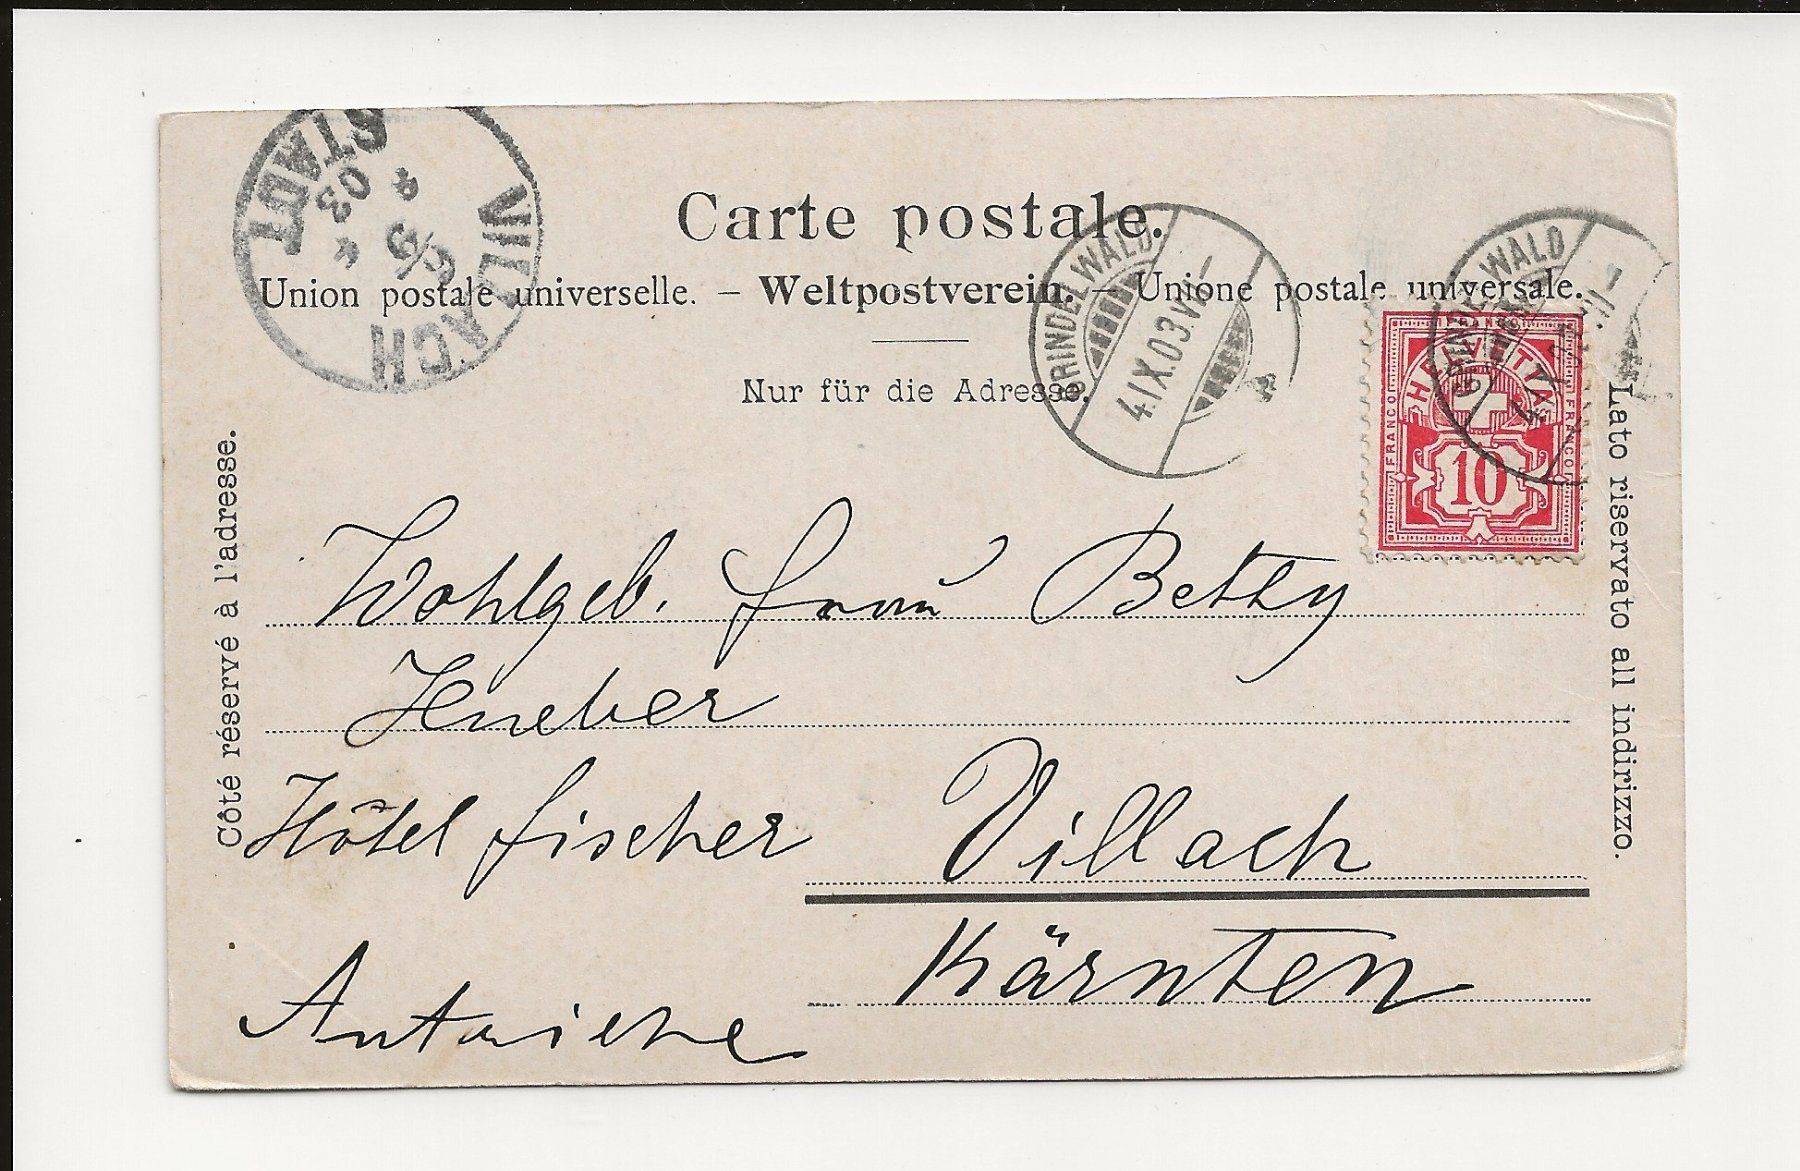 Carte postale.
Union postale universelle. – Weltpostverein. – Unione postale universale.
Nur für die Adresse.
Côté réservé à l'adresse.
Lato riservato all indirizzo.
VILLACH STADT
6/9
03
GRINDELWALD
4.IX.03.VII–
GRINDELWALD
FRANCO
FRANCO
FRANCO
HELVETIA
10
Wohlgeb. Frau Betty
Hueber
Hôtel Fischer Villach
Kärnten